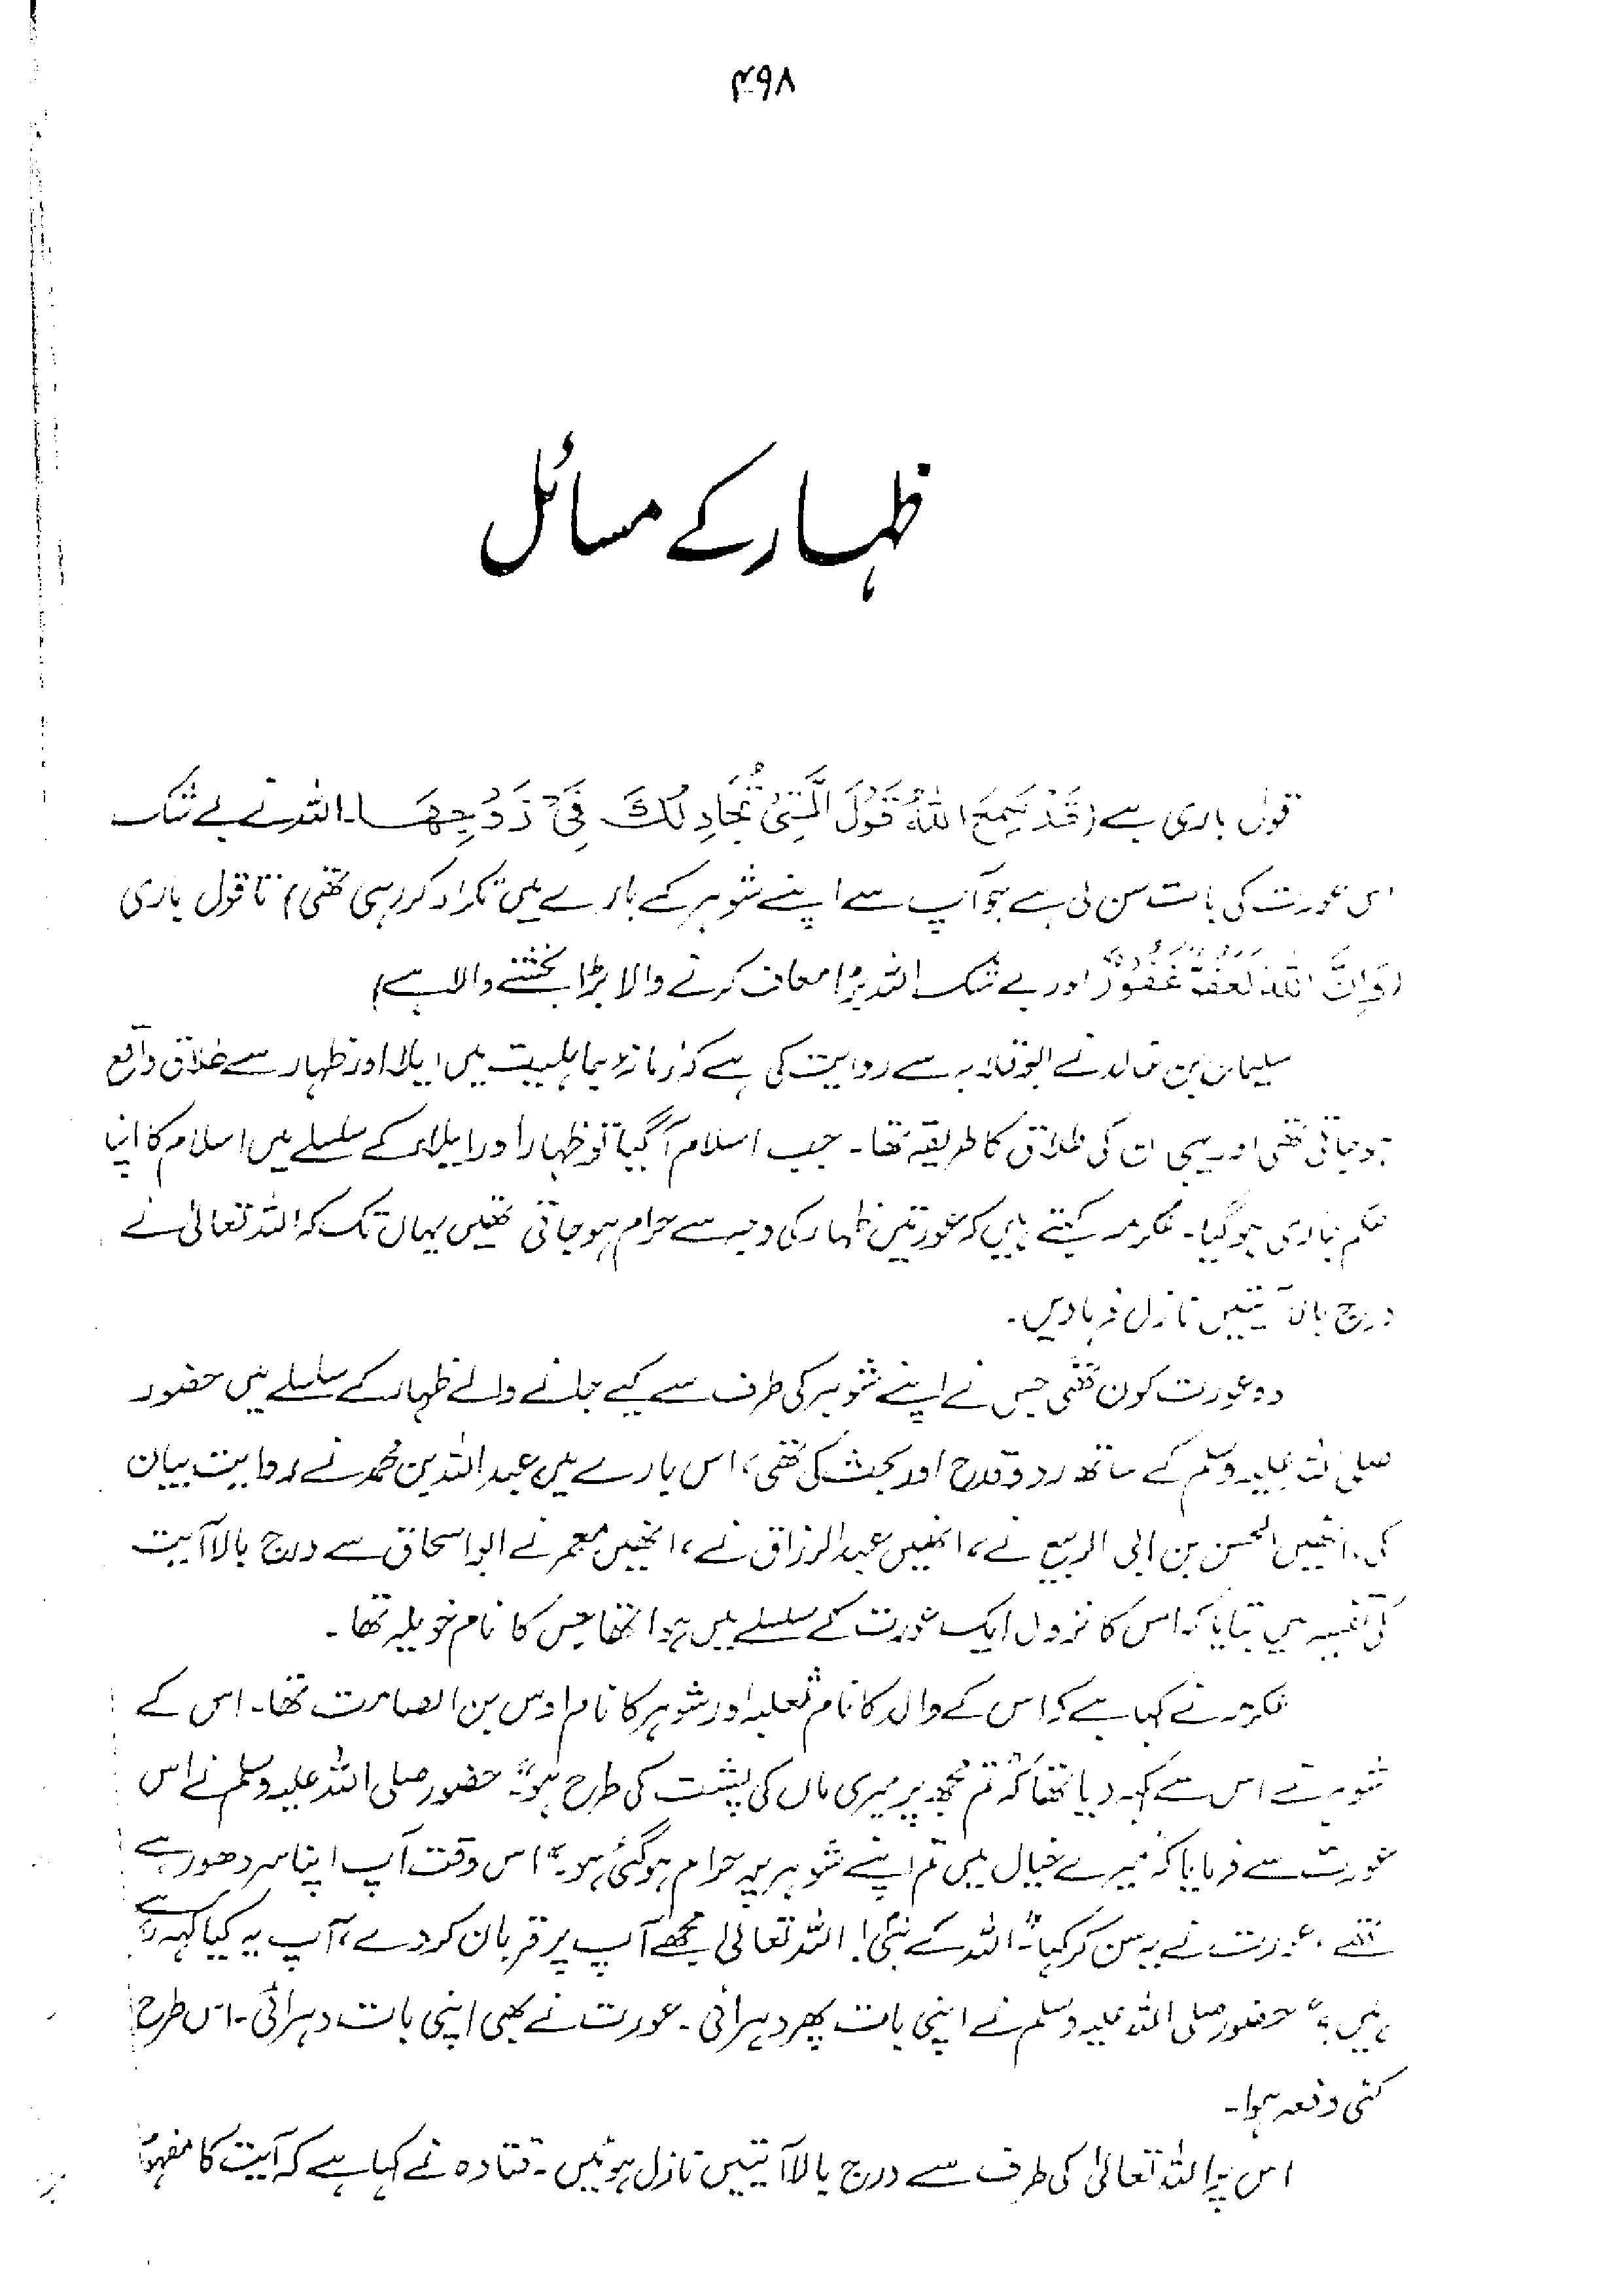 ۴۹۸
ظہار کے مسائل
قول باری ہے (قَدْ سَمِعَ اللّٰهُ قَوْلَ الَّتِیْ تُجَادِلُكَ فِیْ زَوْجِهَا۔ اللہ نے بے شک
اس عورت کی بات سن لی ہے جو آپ سے اپنے شوہر کے بارے میں تکرار کر رہی تھی) تا قول باری
(وَاِنَّ اللّٰهَ لَعَفُوٌّ غَفُوْرٌ اور بے شک اللہ بڑا معاف کرنے والا بڑا بخشنے والا ہے)
سلیمان بن خالد نے ابو قلابہ سے روایت کی ہے کہ زمانہ جاہلیت میں ایلا اور ظہار سے طلاق واقع
ہو جاتی تھی اور یہی ان کی طلاق کا طریقہ تھا۔ جب اسلام آگیا تو ظہار اور ایلاء کے سلسلے میں اسلام کا اپنا
حکم جاری ہوگیا۔ عکرمہ کہتے ہیں کہ عورتیں ظہار کی وجہ سے حرام ہو جاتی تھیں یہاں تک کہ اللہ تعالیٰ نے
درج بالا آیتیں نازل فرما دیں۔
وہ عورت کون تھی جس نے اپنے شوہر کی طرف سے کیے جانے والے ظہار کے سلسلے میں حضور
صلی اللہ علیہ وسلم کے ساتھ رد و قدح اور بحث کی تھی، اس بارے میں عبداللہ بن محمد نے روایت بیان
کی، انھیں الحسن بن ابی الربیع نے، انھیں عبدالرزاق نے، انھیں معمر نے ابو اسحاق سے درج بالا آیت
کی تفسیر میں بتایا کہ اس کا نزول ایک عورت کے سلسلے میں ہوا تھا جس کا نام خویلہ تھا۔
عکرمہ نے کہا ہے کہ اس کے والد کا نام ثعلبہ اور شوہر کا نام اوس بن الصامت تھا۔ اس کے
شوہر نے اس سے کہہ دیا تھا کہ "تم مجھ پر میری ماں کی پشت کی طرح ہو"۔ حضور صلی اللہ علیہ وسلم نے اس
عورت سے فرمایا کہ "میرے خیال میں تم اپنے شوہر پر حرام ہوگئی ہو۔" اس وقت آپ اپنا سر دھو رہے
تھے۔ عورت نے یہ سن کر کہا۔ "اللہ کے نبی! اللہ تعالیٰ مجھے آپ پر قربان کر دے، آپ یہ کیا کہہ رہے
ہیں؟" حضور صلی اللہ علیہ وسلم نے اپنی بات پھر دہرائی۔ عورت نے بھی اپنی بات دہرائی۔ اس طرح
کئی دفعہ ہوا۔
اس پر اللہ تعالیٰ کی طرف سے درج بالا آیتیں نازل ہوئیں۔ قتادہ نے کہا ہے کہ آیت کا مفہوم